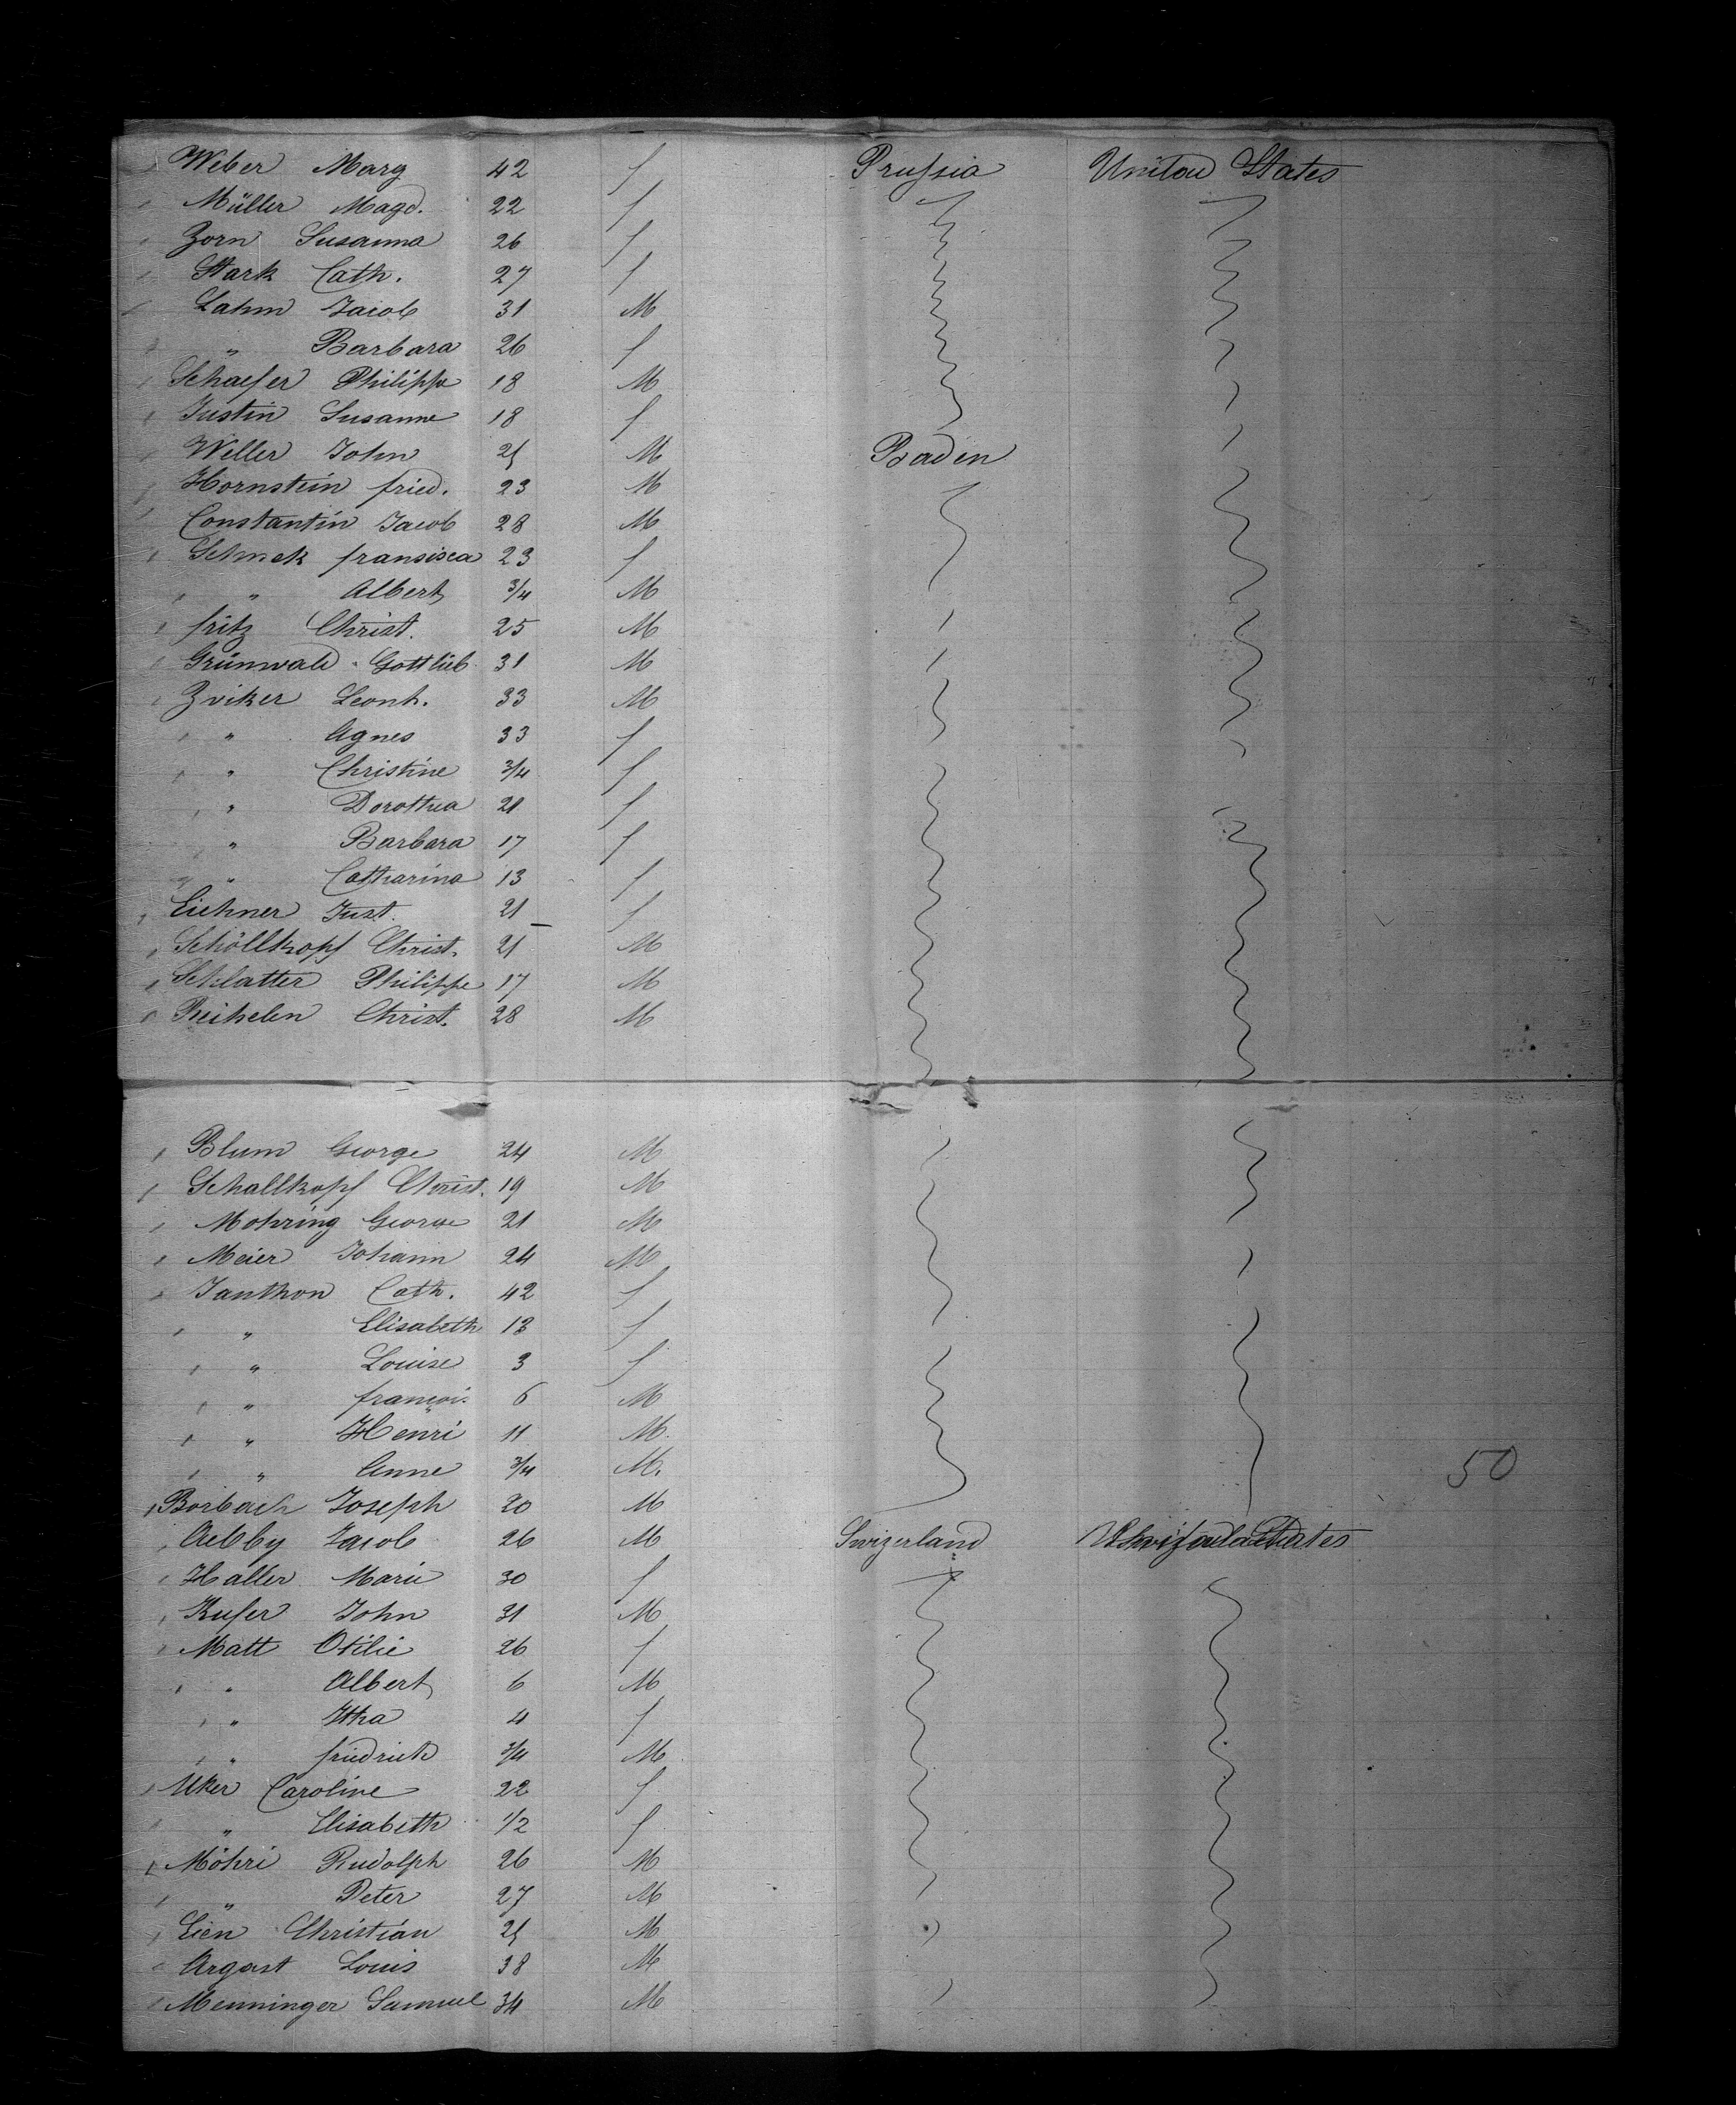 Weber Marg 42 f Prussia United States
Müller Magd. 22 f
Zorn Susanna 26 f
Stark Cath. 27 f
Lahm Jacob 31 M
" Barbara 26 f
Schaefer Philippe 18 M
Justin Susanne 18 f
Weller John 25 M Baden
Hornstein fried. 23 M
Constantin Jacob 28 M
Schmek fransisca 23 f
" Albert 3/4 M
fritz Christ. 25 M
Grünwald Gottlieb 31 M
Zviker Leonh. 33 M
" Agnes 33 f
" Christine 3/4 f
" Dorothea 21 f
" Barbara 17 f
" Catharina 13 f
Eichner Just. 21 f
Schöllkopf Christ. 21 M
Schlatter Philippe 17 M
Reihelen Christ. 28 M
Blum George 24 M
Schallkopf Christ. 19 M
Mohring George 21 M
Meier Johann 24 M
Janthon Cath. 42 f
" Elisabeth 13 f
" Louise 3 f
" françois 6 M
" Henri 11 M
" Anne 3/4 M. 50
Borbach Joseph 20 M
Aebby Jacob 26 M Swizerland States
Haller Marie 30 f
Kufer John 31 M
Matt Otilie 26 f
" Albert 6 M
" Itha 4 f
" friedrich 3/4 M
Uker Caroline 22 f
" Elisabeth 1/2 f
Möhri Rudolph 26 M
" Peter 27 M
Lien Christian 25 M
Argast Louis 38 M
Menninger Samuel 34 M